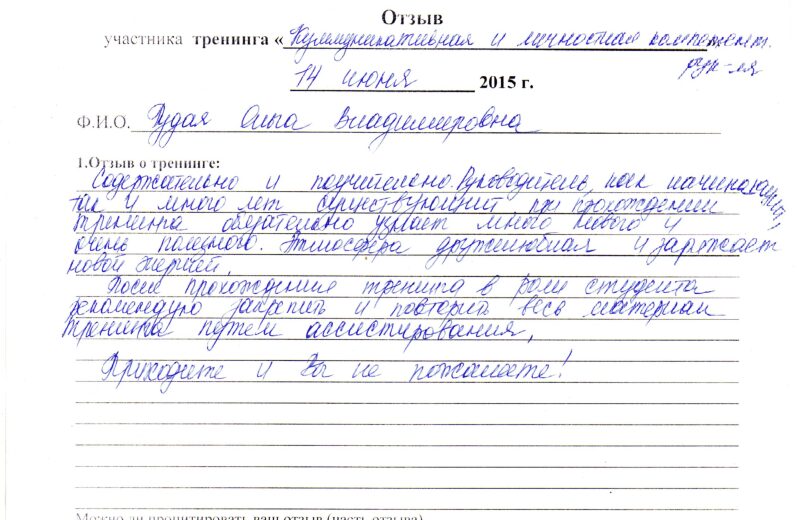 Отзыв
участника тренинга « Куммуникативная и личностная компетент.
рук-ля
14 июня 2015 г.
Ф.И.О. Рудая Ольга Владимировна
1.Отзыв о тренинге:
Содержательно и поучительно. Руководитель, как начинающий,
так и много лет существующий при прохождении
тренинга обязательно узнает много нового и
очень полезного. Атмосфера дружелюбная и заряжает
новой энергией.
После прохождения тренинга в роли студента
рекомендую закрепить и повторить весь материал
тренинга путем ассистирования,
Приходите и Вы не пожалеете!
Можно ли процитировать ваш отзыв (часть отзыва)